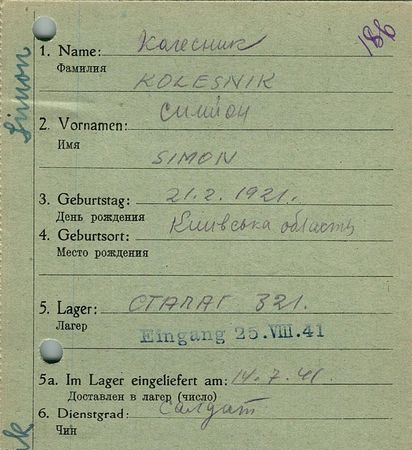 186
Simon
1. Name: Колесник
Фамилия
KOLESNIK
симион
2. Vornamen:
Имя
SIMON
3. Geburtstag: 21.2.1921.
День рождения
4. Geburtsort: Київська область
Место рождения
5. Lager: СТАЛАГ 321.
Лагерь
Eingang 25. VIII. 41
5a. Im Lager eingeliefert am: 14.7.41.
Доставлен в лагер (число)
6. Dienstgrad: салдат
Чин